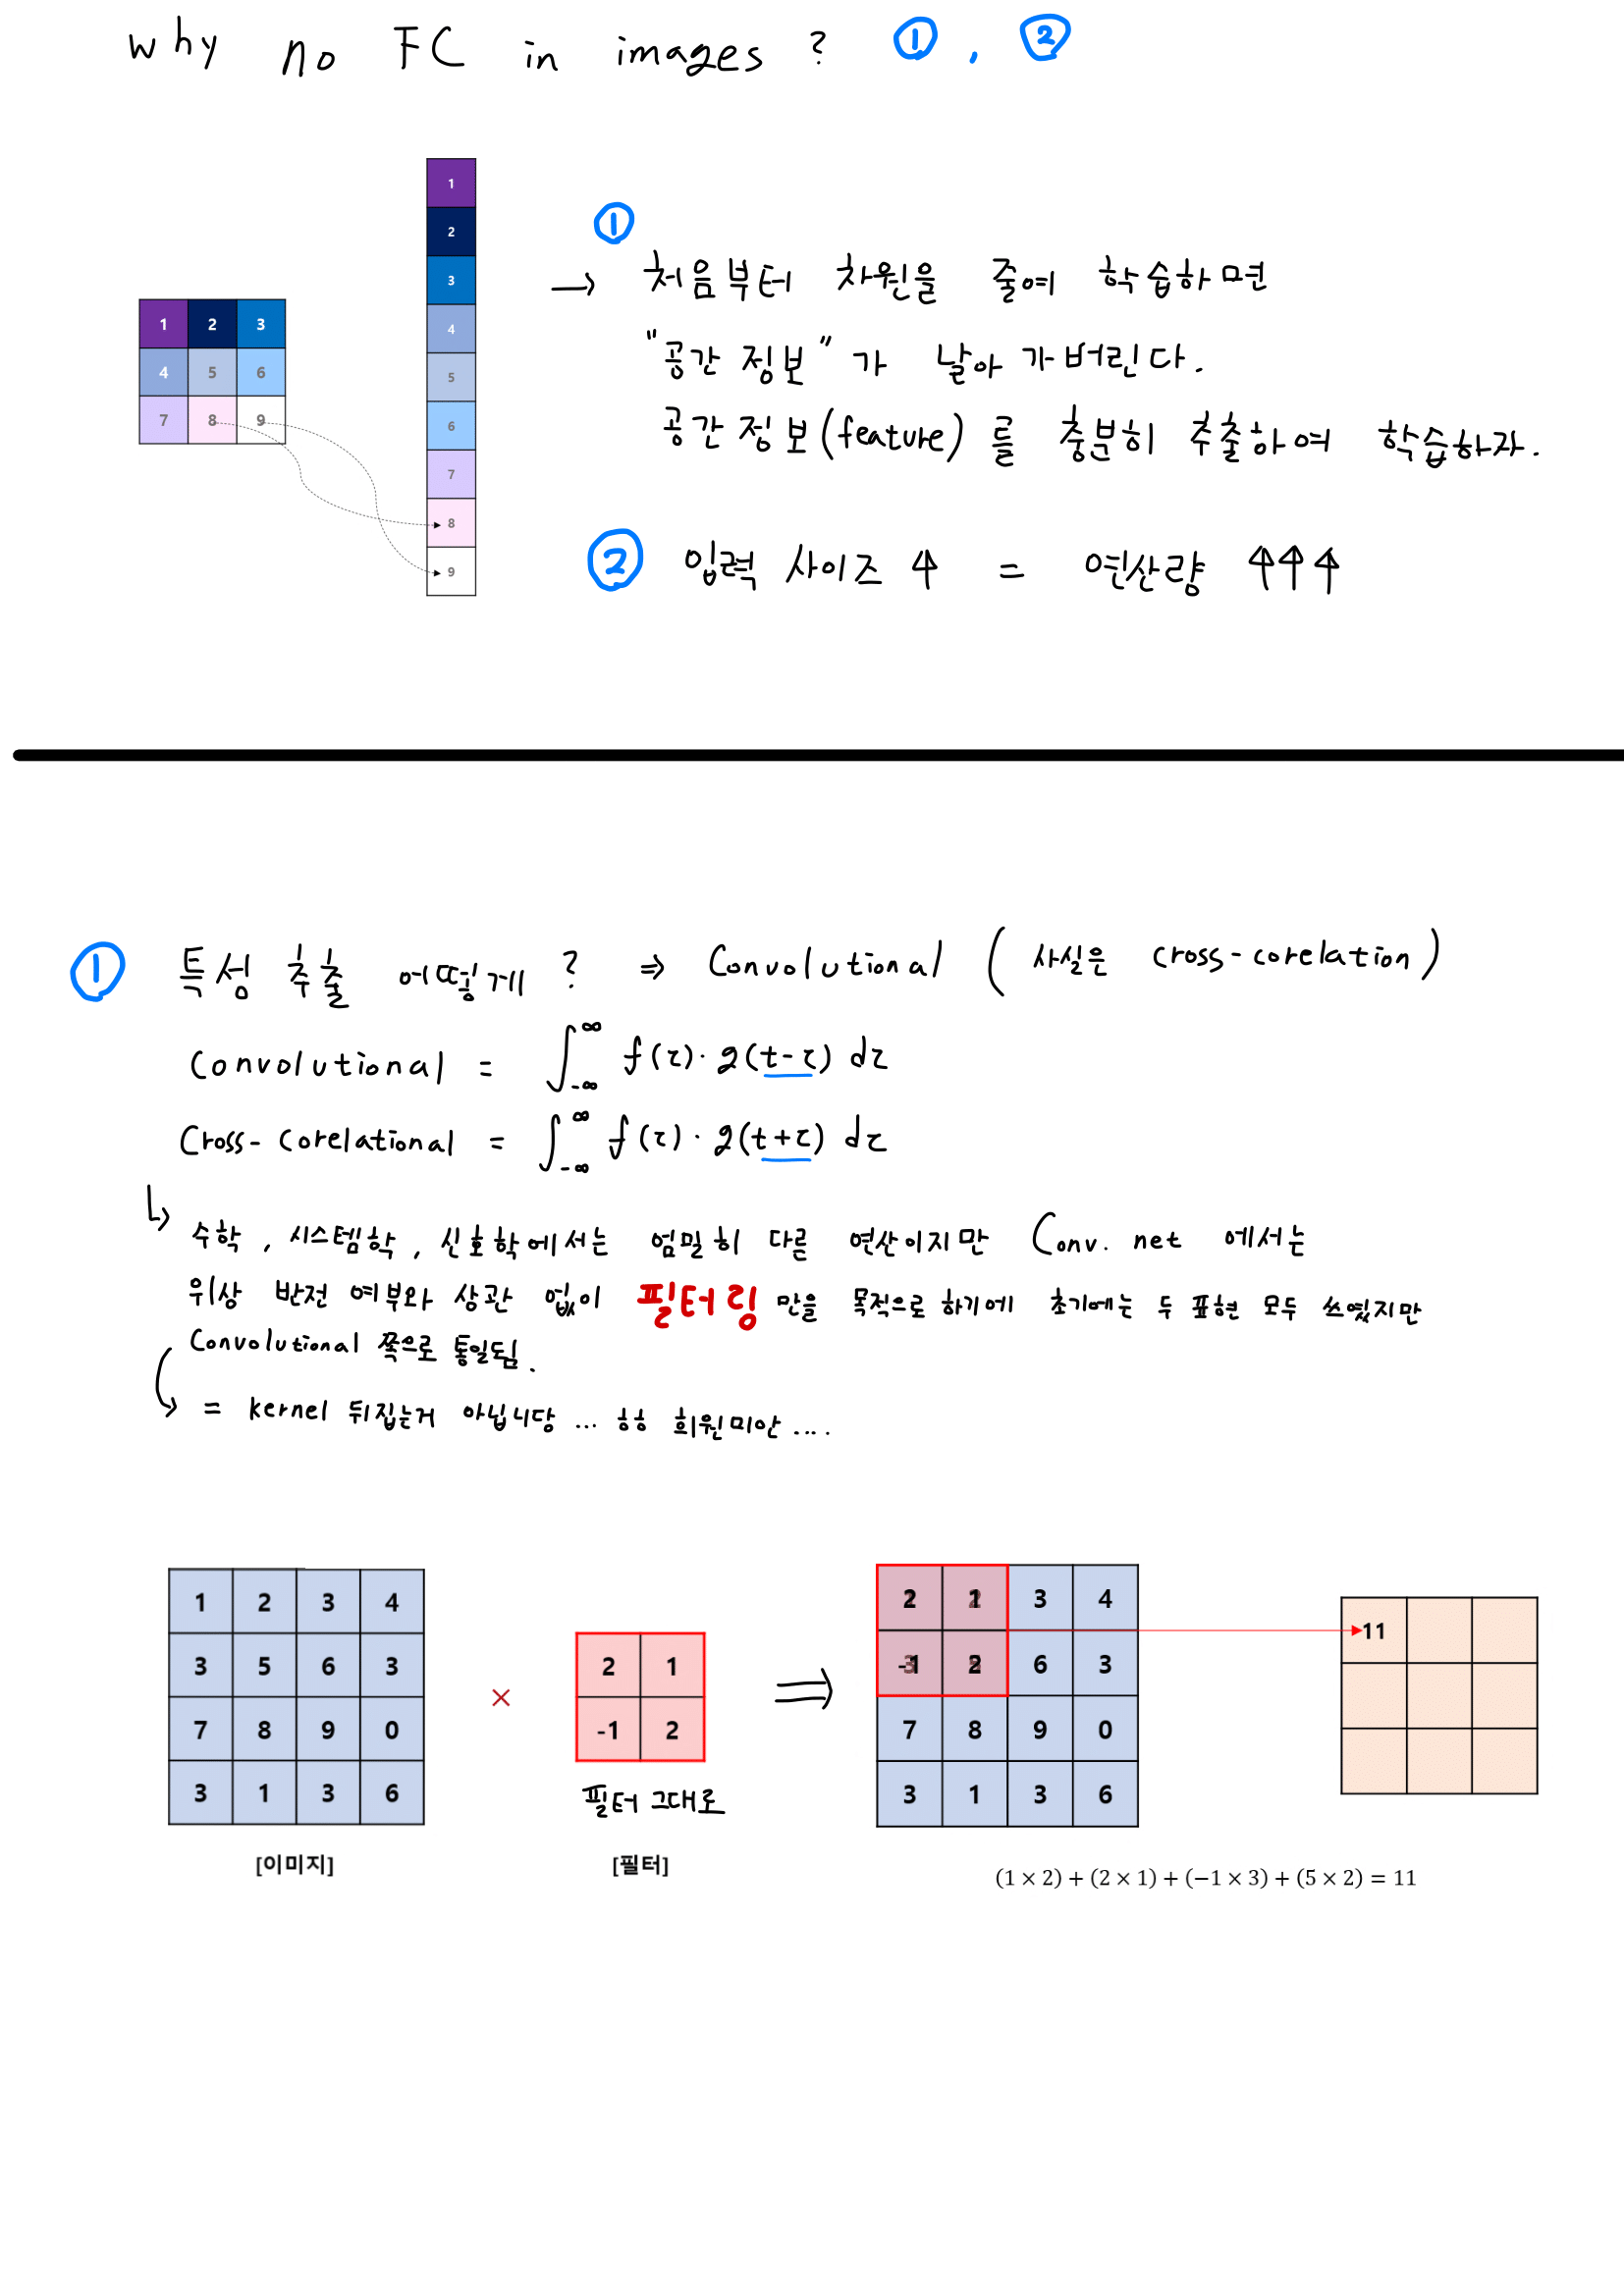 why no FC in images ? ① , ②
1
2
3
4
5
6
7
8
9
1 2 3
4 5 6
7 8 9
①
→ 처음부터 차원을 줄여 학습하면
"공간 정보"가 날아 가버린다.
공간 정보(feature)를 충분히 추출하여 학습하자.
② 입력 사이즈 ↑ = 연산량 ↑↑↑
① 특성 추출 어떻게 ? ⇒ Convolutional ( 사실은 cross-corelation )
Convolutional = ∫_{-∞}^{∞} f(τ)·g(t-τ) dτ
Cross-corelational = ∫_{-∞}^{∞} f(τ)·g(t+τ) dτ
↳ 수학, 시스템학, 신호학에서는 엄밀히 다른 연산이지만 Conv. net 에서는
위상 반전 여부와 상관 없이 필터링 만을 목적으로 하기에 초기에는 두 표현 모두 쓰였지만
Convolutional 쪽으로 통일됨.
= kernel 뒤집는거 아닙니당 ... ㅎㅎ 희원미안 ....
1 2 3 4
3 5 6 3
7 8 9 0
3 1 3 6
[이미지]
×
2 1
-1 2
필터 그대로
[필터]
⇒
2 1 3 4
-1 2 6 3
7 8 9 0
3 1 3 6
11
(1 × 2) + (2 × 1) + (−1 × 3) + (5 × 2) = 11